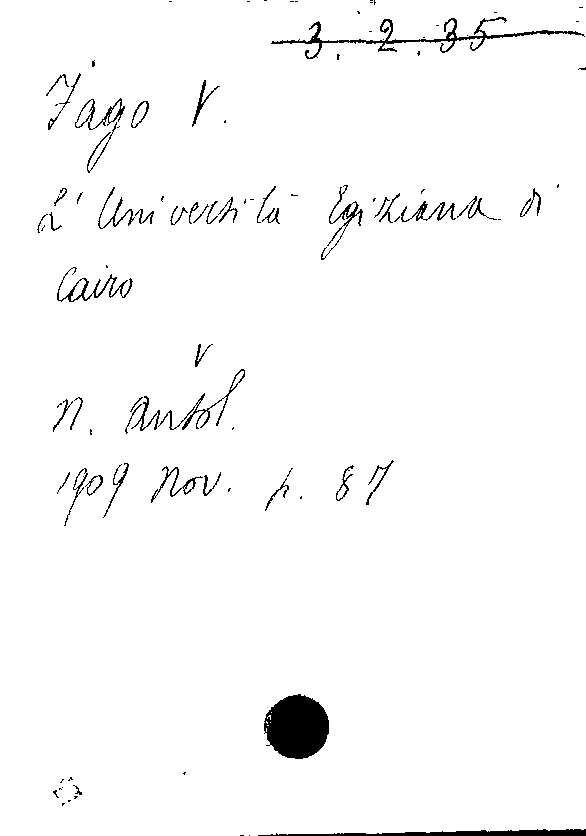 3. 2. 35
Fago V.
L' Università Egiziana di
Cairo
V
N. Antol.
1909 Nov. p. 87